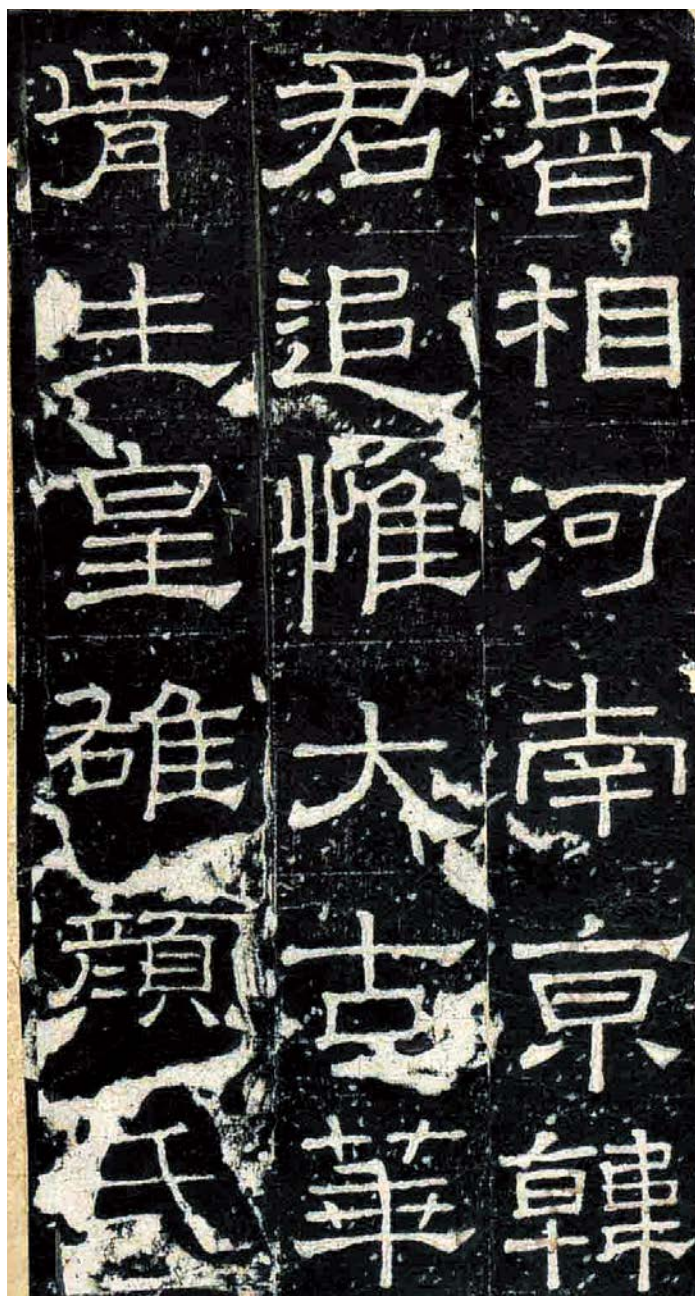 魯相河南京韓
君追惟大古華
胥生皇雄顏氏